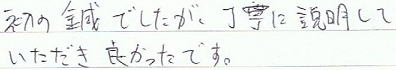 初の鍼でしたが、丁寧に説明して
いただき良かったです。